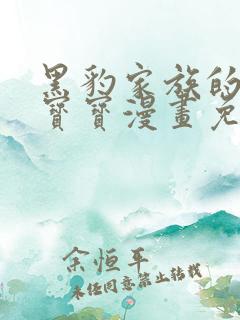 黑豹家族的
寶寶漫畫免
余恒平
未经同意禁止转载